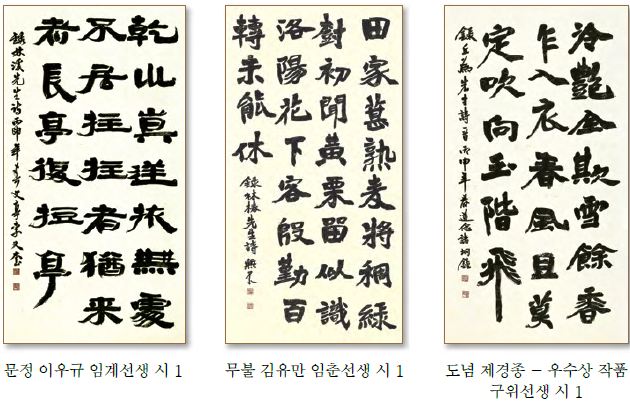 乾坤真逆旅無處
不居往往者猶来
者長亭復短亭
田家葚熟麦將稠緑
樹初聞黄栗留似識
洛陽花下客殷勤百
轉未能休
錄林椿先生詩
冷艷全欺雪餘香
乍入衣春風且莫
定吹向玉階飛
錄丘爲先生詩 丙申年春道念
문정 이우규 임계선생 시 1
무불 김유만 임춘선생 시 1
도념 제경종 – 우수상 작품
구위선생 시 1